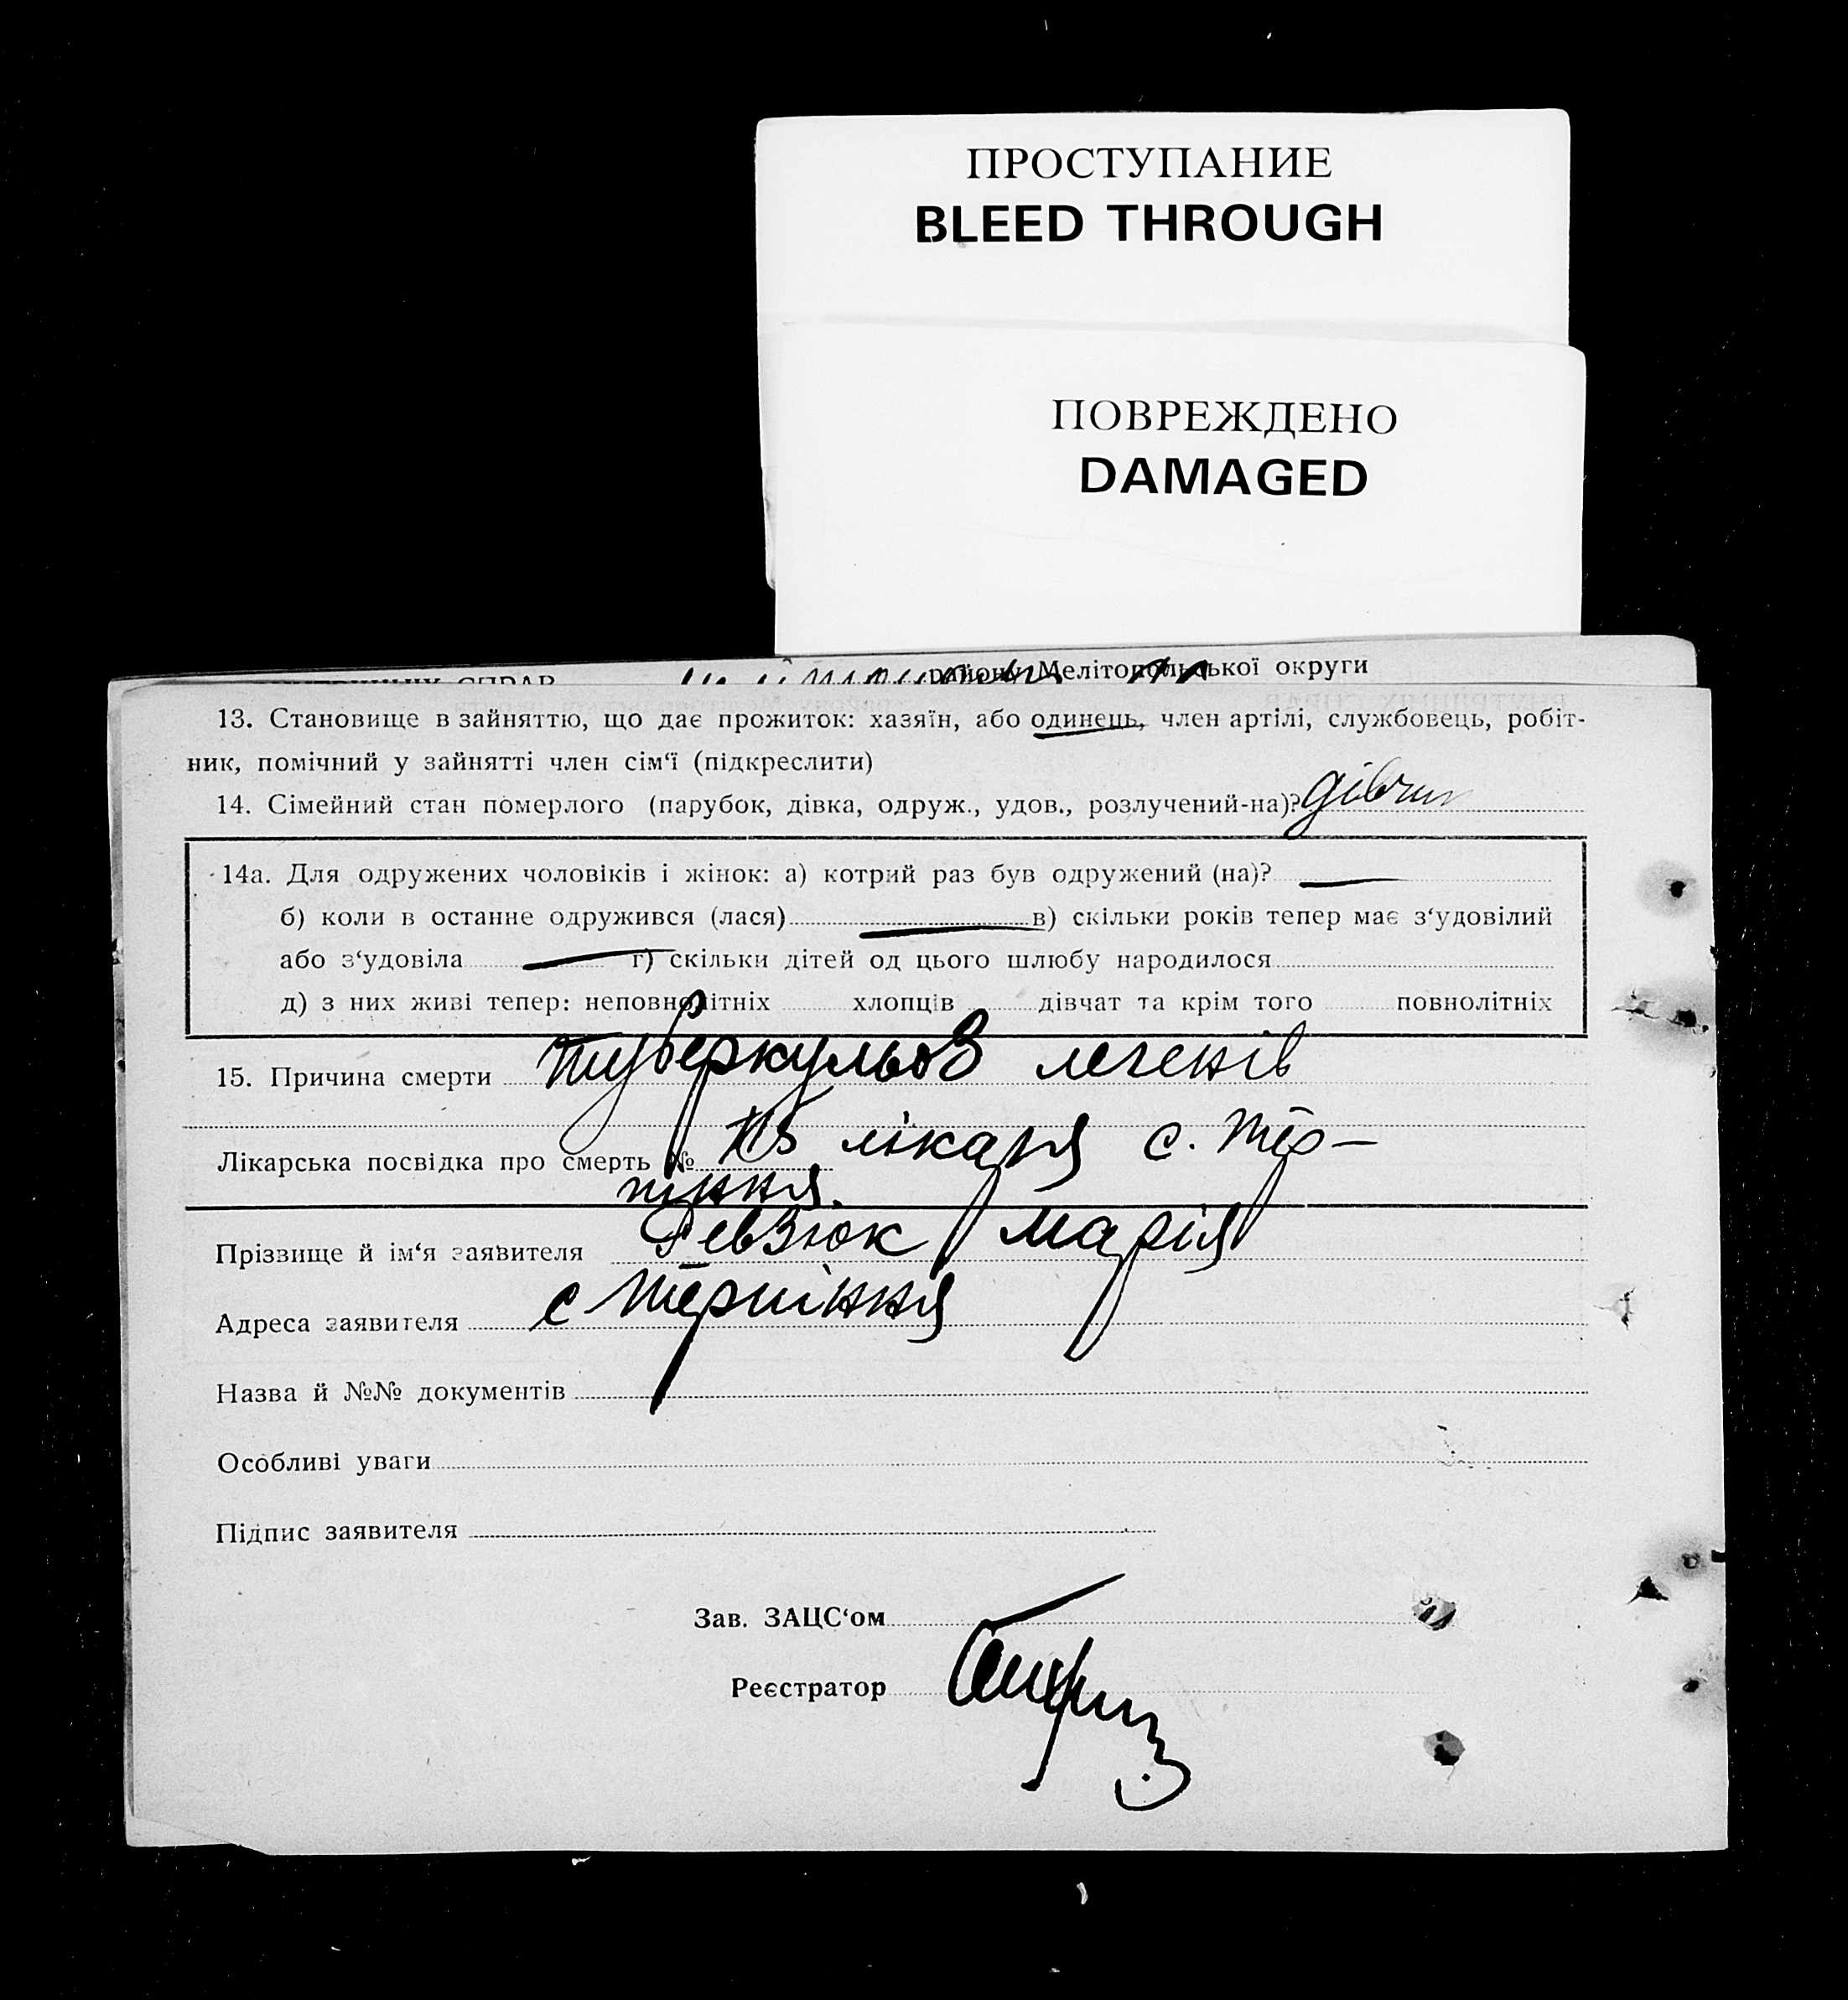 ПРОСТУПАНИЕ
BLEED THROUGH
ПОВРЕЖДЕНО
DAMAGED
району Мелітопольської округи
13. Становище в зайняттю, що дає прожиток: хазяїн, або одинець, член артілі, службовець, робіт-
ник, помічний у зайнятті член сім‘ї (підкреслити)
14. Сімейний стан померлого (парубок, дівка, одруж., удов., розлучений-на)?
14а. Для одружених чоловіків і жінок: а) котрий раз був одружений (на)? —
б) коли в останне одружився (лася) — в) скільки років тепер має з‘удовілий
або з‘удовіла — г) скільки дітей од цього шлюбу народилося
д) з них живі тепер: неповнолітніх хлопців дівчат та крім того повнолітніх
15. Причина смерти туберкульоз легенів
Лікарська посвідка про смерть № лікаря с. Тер-
піння.
Прізвище й ім‘я заявителя Ревзюк Марія
Адреса заявителя с Терпіння
Назва й №№ документів
Особливі уваги
Підпис заявителя
Зав. ЗАЦС‘ом
Реєстратор